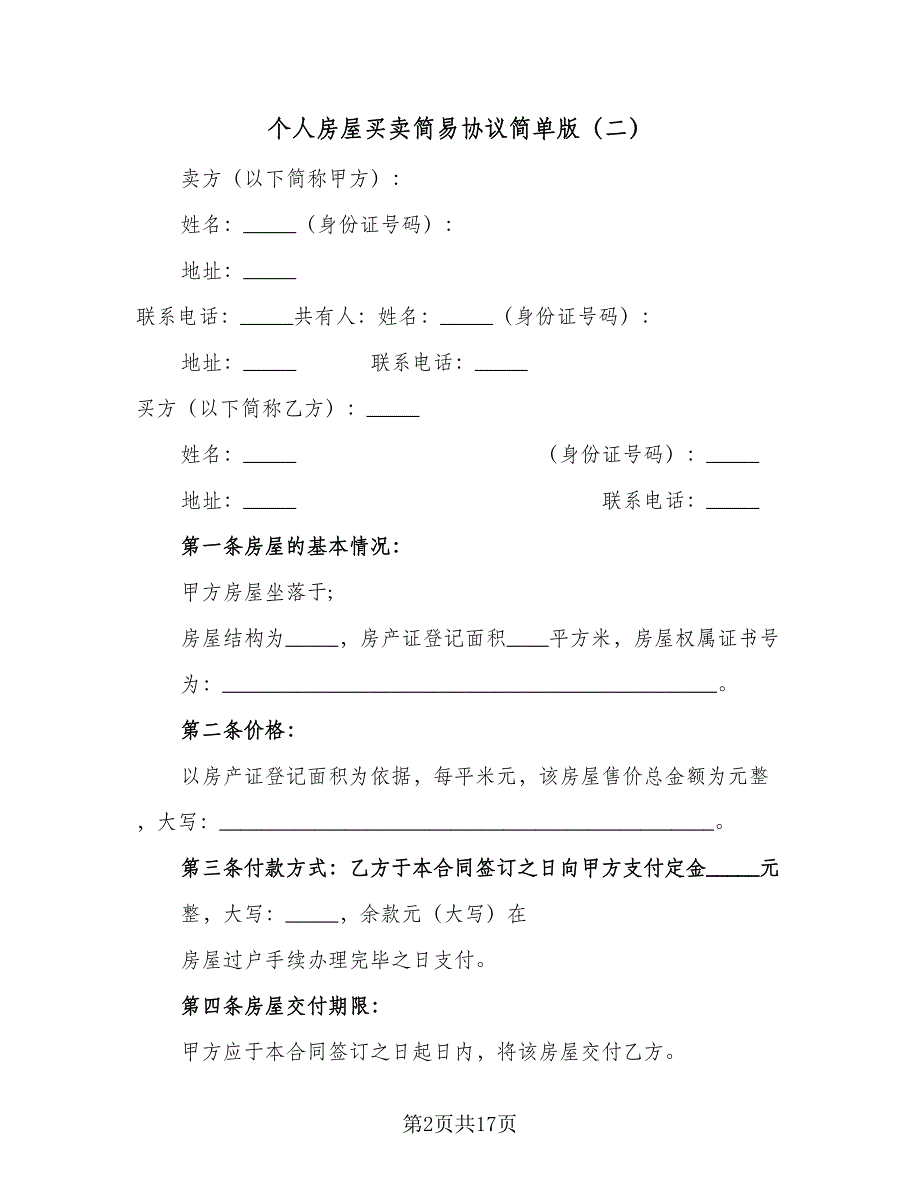 个人房屋买卖简易协议简单版（二）
卖方（以下简称甲方）：
姓名：_____（身份证号码）：
地址：_____
联系电话：_____共有人：姓名：_____（身份证号码）：
地址：_____ 联系电话：_____
买方（以下简称乙方）：_____
姓名：_____ （身份证号码）：_____
地址：_____ 联系电话：_____
第一条房屋的基本情况：
甲方房屋坐落于;
房屋结构为_____，房产证登记面积____平方米，房屋权属证书号
为：_______________________________________________。
第二条价格：
以房产证登记面积为依据，每平米元，该房屋售价总金额为元整
，大写：_______________________________________________。
第三条付款方式：乙方于本合同签订之日向甲方支付定金_____元
整，大写：_____，余款元（大写）在
房屋过户手续办理完毕之日支付。
第四条房屋交付期限：
甲方应于本合同签订之日起日内，将该房屋交付乙方。
第2页共17页